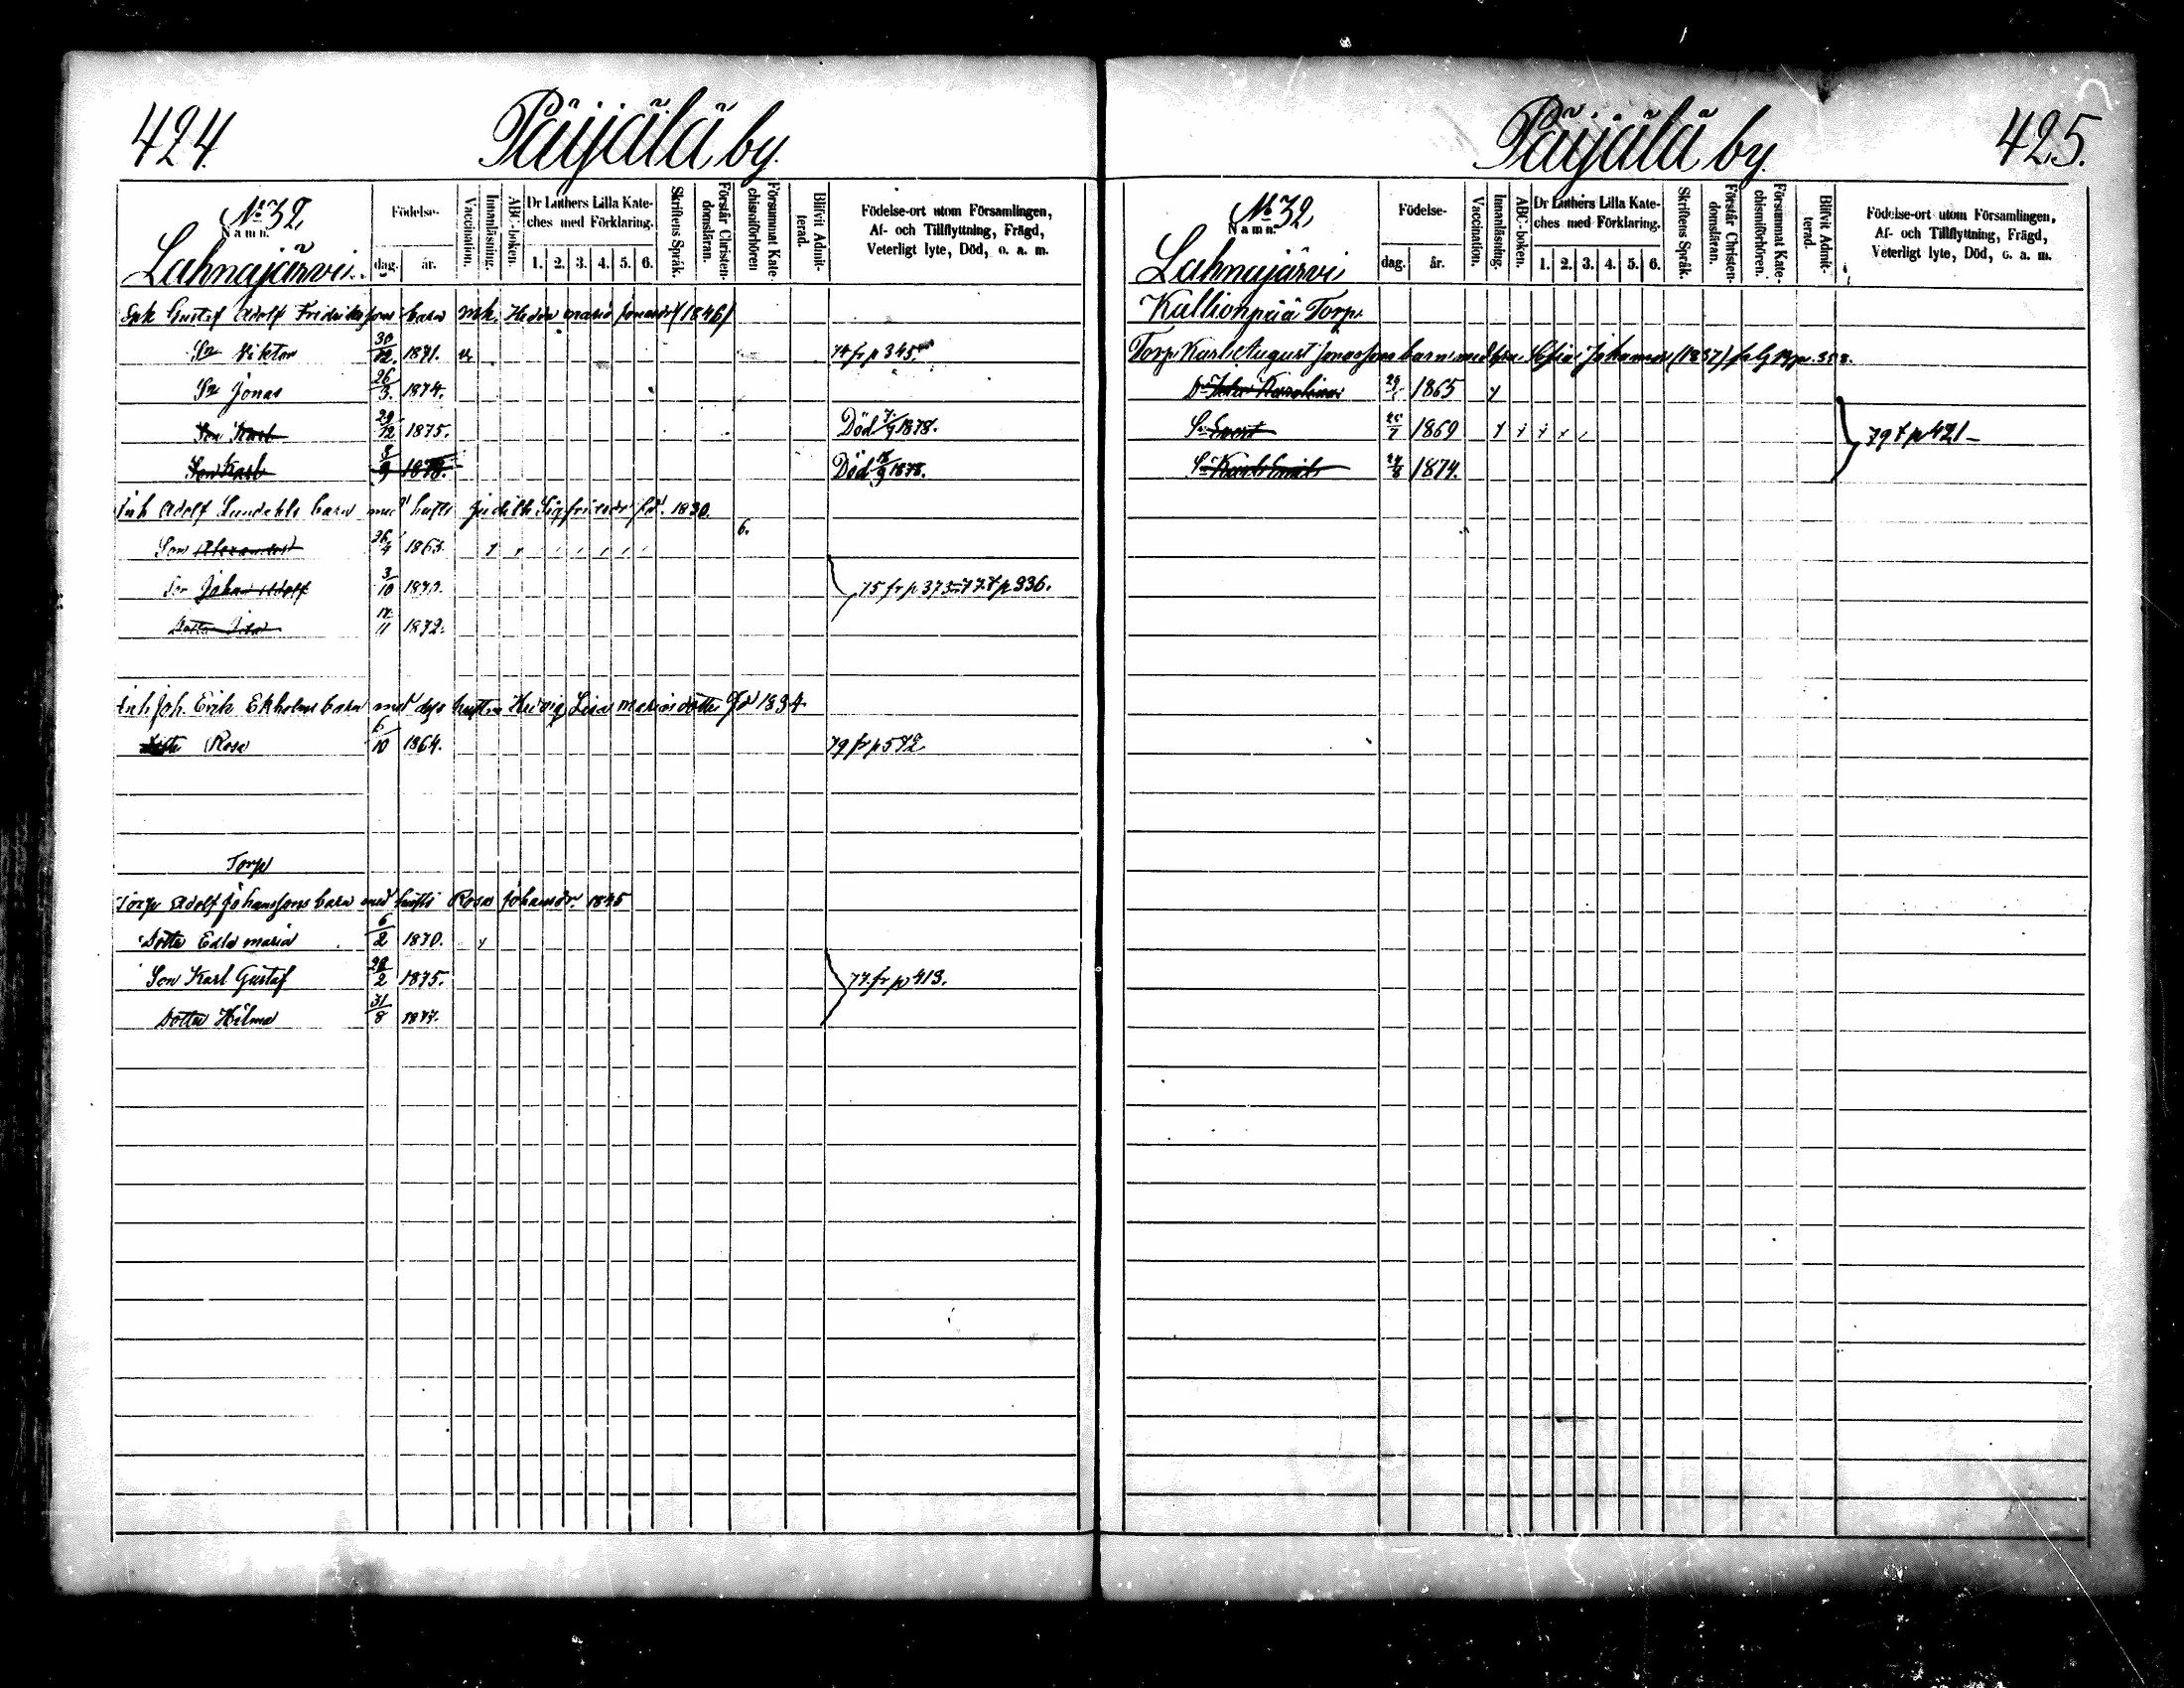 424.
Päijälä by.
No 32
Namn.
Lahnajärvi.
Födelse-
dag.
år.
Vaccination.
Innanläsning.
ABC-boken.
Dr Luthers Lilla Kate-
ches med Förklaring.
1. 2. 3. 4. 5. 6.
Skriftens Språk.
Förstår Christen-
domsläran.
Försummat Kate-
chismiförhören
Blifvit Admit-
terad.
Födelse-ort utom Församlingen,
Af- och Tillflyttning, Frägd,
Veterligt lyte, Död, o. a. m.
Gustaf Adolf Fredriksons barn Hedda Maria Jonasdr (1846)
Sn Viktor 30/12. 1871. 74 fr p 345.
Sn Jonas 26/3. 1874.
Son Karl 29/12 1875. Död 7/9 1878.
Son Karl 8/9 1878. Död 18/9 1878.
Inh Adolf Lundahls barn med hustr Judith Sigfridsdr föd. 1830.
Son Alexander 26/4 1863. 6.
Son Johan Adolf 3/10 75 fr p 373 - 77 t p 336.
Dotter 12/11 1872.
Inh Joh. Erik Ekholms barn med dess hustru Hedvig Lisa Mariasdotter
Rosa 6/10 1864. 79 fr p 572
Torp
Torp Adolf Johanssons barn med hustr Rosa Johansdr. 1845
Dotter Edla Maria 6/2 1870.
Son Karl Gustaf 28/2 1875. 77 fr p 413.
Dotter Hilma 31/8 1877.
Päijälä by.
425.
No 32
Namn.
Lahnajärvi
Födelse-
dag.
år.
Vaccination.
Innanläsning.
ABC-boken.
Dr Luthers Lilla Kate-
ches med Förklaring.
1. 2. 3. 4. 5. 6.
Skriftens Språk.
Förstår Christen-
domsläran.
Försummat Kate-
chismiförhören.
Blifvit Admit-
terad.
Födelse-ort utom Församlingen,
Af- och Tillflyttning, Frägd,
Veterligt lyte, Död, o. a. m.
Kallionpää Torp.
Torp Karl August Jonassons barn med Sofia Johansdr (1837)
Karolina 1865
Sn Evert 1869 79 t p 421 -
Sn Karl Emil 1874.